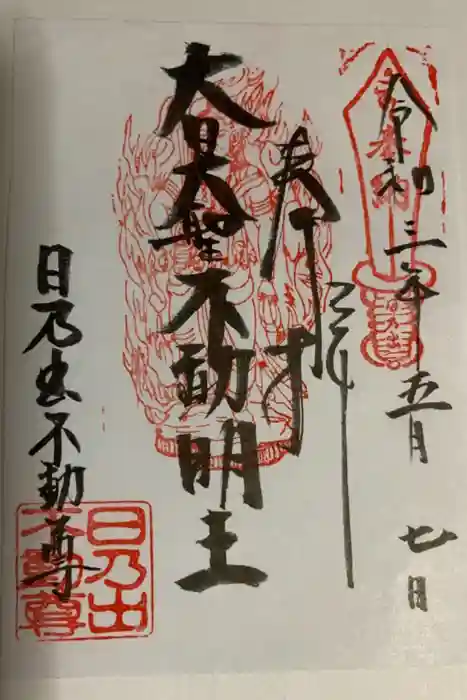 令和三年五月七日
奉拝
大日大聖不動明王
日乃出不動尊
日乃出
不動尊